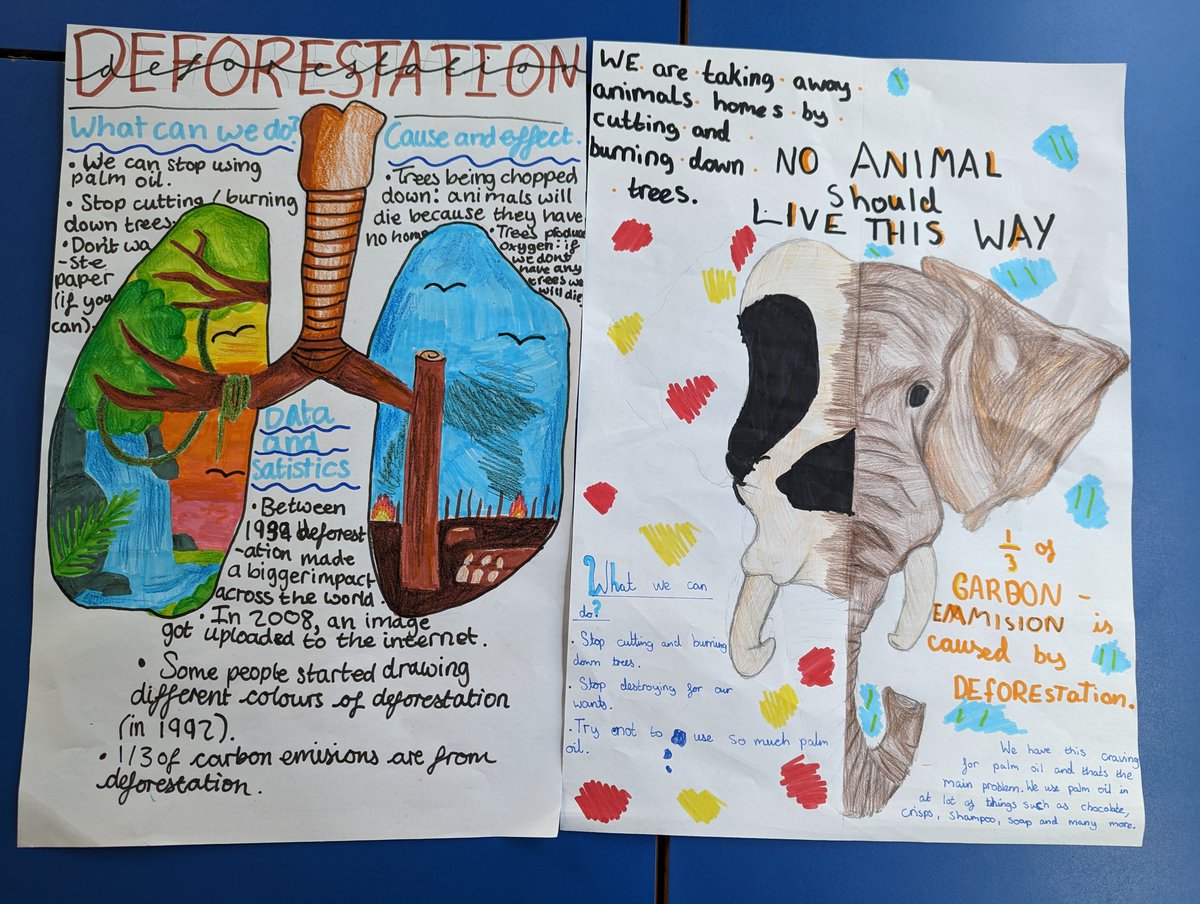 DEFORESTATION
deforestation
What can we do?
• We can stop using
palm oil.
• Stop cutting / burning
down trees
• Don't wa
-ste
paper
(if you
can).
Cause and effect.
• Trees being chopped
down: animals will
die because they have
no home
• Trees produce
oxygen: if
we dont
have any
trees we
will die
Data
and
satistics
• Between
deforest
-ation made
a bigger impact
across the world.
• In 2008, an image
got uploaded to the internet.
• Some people started drawing
different colours of deforestation
(in 1992).
• 1/3 of carbon emisions are from
deforestation.
WE are taking away
animals homes by
cutting and
burning down
trees.
NO ANIMAL
should
LIVE THIS WAY
What we can
do?
• Stop cutting and burning
down trees.
• Stop destroying for our
wants.
• Try not to use so much palm
oil.
1/3 of
CARBON -
EMMISION is
caused by
DEFORESTATION.
We have this craving
for palm oil and thats the
main problem. We use palm oil in
at lot of things such as chocolate,
crisps, shampoo, soap and many more.